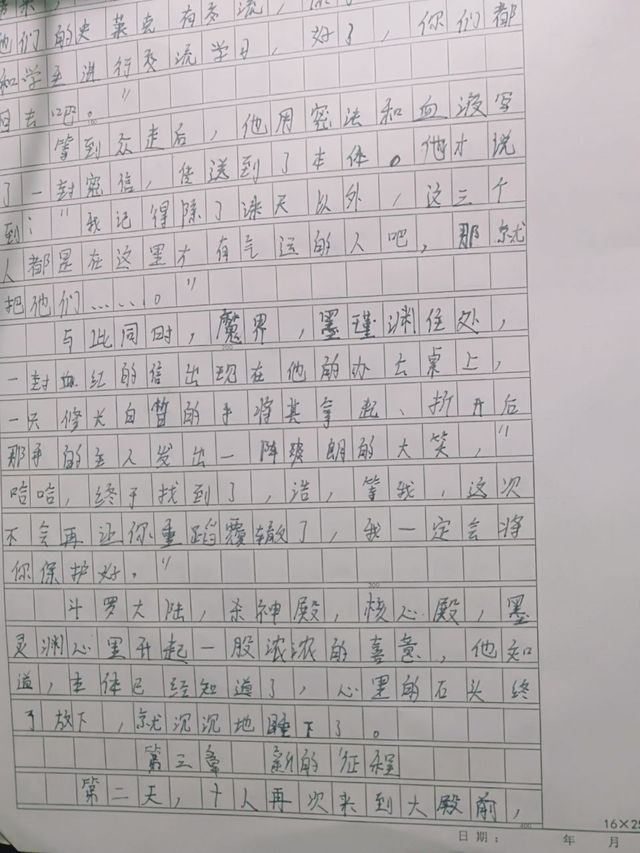 他们的史莱克有交流，
和学生进行交流学习，好了，你们都
回去吧。”
等到众走后，他用密法和血液写
了一封密信，传送到了本体。他才说
到：“我记得除了沫天以外，这三个
人都是在这里才有气运的人吧，那就
把他们……。”
与此同时，魔界，墨瑾渊住处，
一封血红的信出现在他的办公桌上，
一只修长白皙的手将其拿起、折开后
那手的主人发出一阵爽朗的大笑，“
哈哈，终于找到了，浩，等我，这次
不会再让你重蹈覆辙了，我一定会将
你保护好。”
300
斗罗大陆，杀神殿，核心殿，墨
灵渊心里升起一股浓浓的喜意，他知
道，主体已经知道了，心里的石头终
于放下，就沉沉地睡下了。
第三章 新的征程
第二天，十人再次来到大殿前，
400
16×25
日期： 年 月